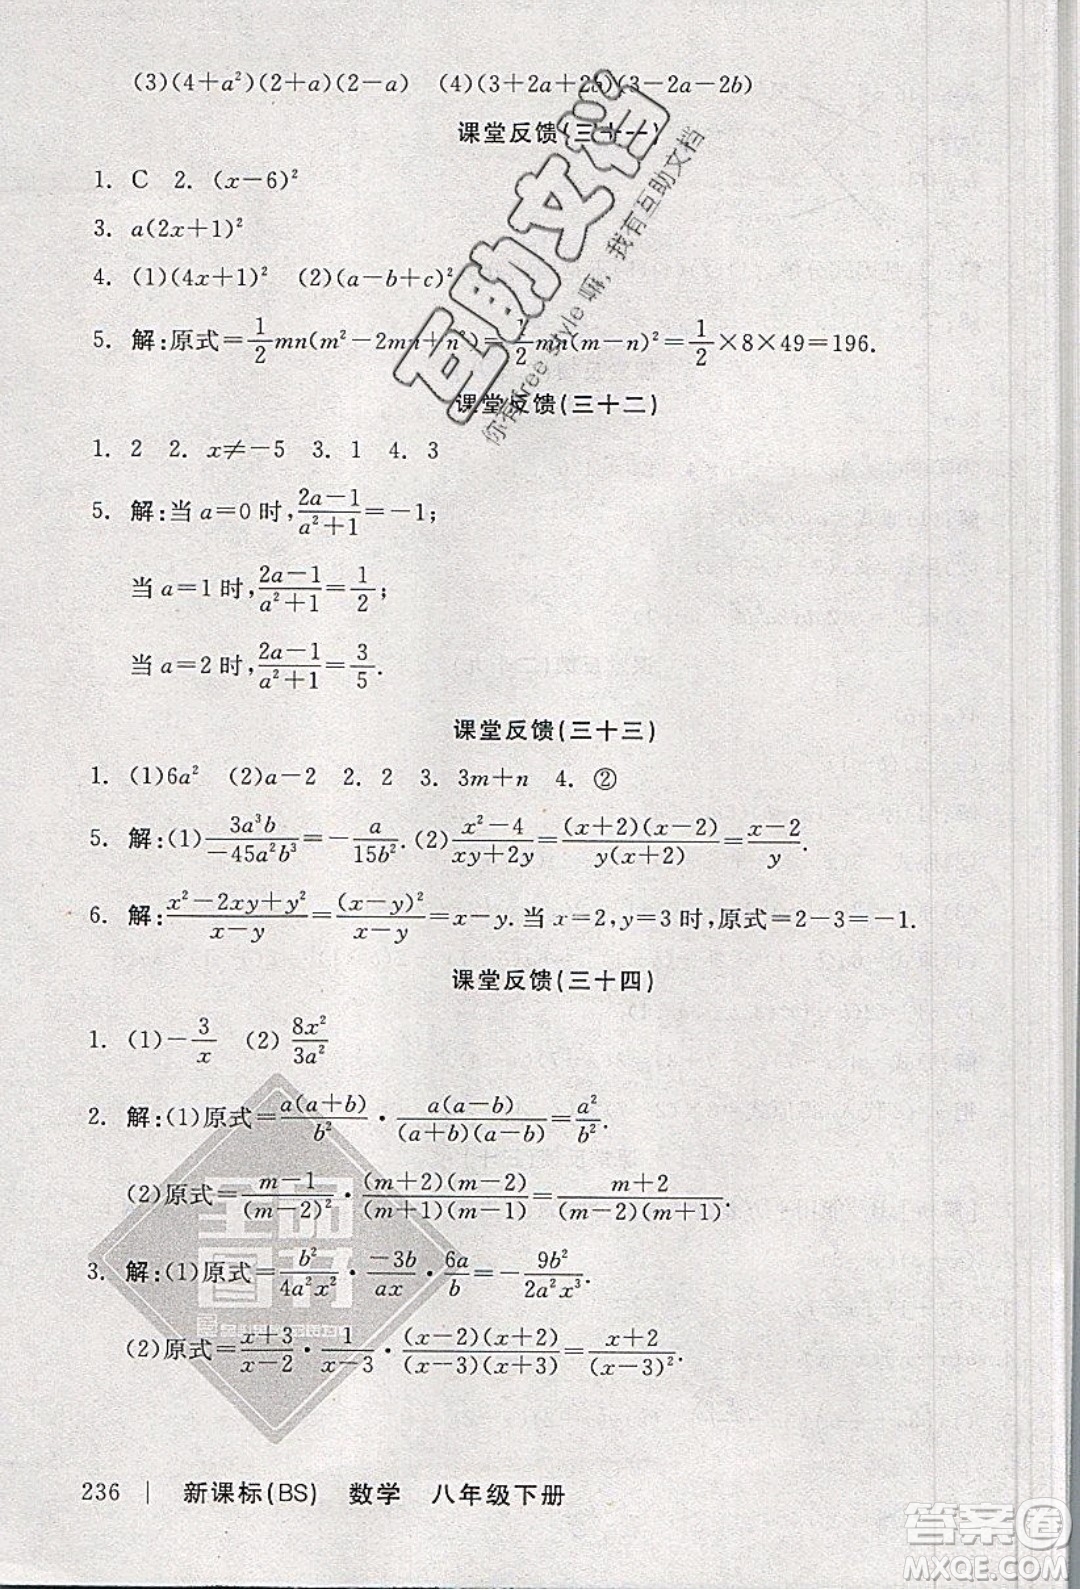 (3)(4+a²)(2+a)(2−a)　(4)(3+2a+2b)(3−2a−2b)
课堂反馈(三十一)
1. C　2. (x−6)²
3. a(2x+1)²
4. (1)(4x+1)²　(2)(a−b+c)²
5. 解:原式=1/2mn(m²−2mn+n²)=1/2mn(m−n)²=1/2×8×49=196.
课堂反馈(三十二)
1. 2　2. x≠−5　3. 1　4. 3
5. 解:当a=0时,(2a−1)/(a²+1)=−1;
当a=1时,(2a−1)/(a²+1)=1/2;
当a=2时,(2a−1)/(a²+1)=3/5.
课堂反馈(三十三)
1. (1)6a²　(2)a−2　2. 2　3. 3m+n　4. ②
5. 解:(1)3a³b/(−45a²b³)=−a/(15b²).(2)(x²−4)/(xy+2y)=(x+2)(x−2)/(y(x+2))=(x−2)/y.
6. 解:(x²−2xy+y²)/(x−y)=(x−y)²/(x−y)=x−y.当x=2,y=3时,原式=2−3=−1.
课堂反馈(三十四)
1. (1)−3/x　(2)8x²/(3a²)
2. 解:(1)原式=a(a+b)/b²·a(a−b)/((a+b)(a−b))=a²/b².
(2)原式=(m−1)/(m−2)²·(m+2)(m−2)/((m+1)(m−1))=(m+2)/((m−2)(m+1)).
3. 解:(1)原式=b²/(4a²x²)·(−3b)/(ax)·6a/b=−9b²/(2a²x³).
(2)原式=(x+3)/(x−2)·1/(x−3)·(x−2)(x+2)/((x−3)(x+3))=(x+2)/(x−3)².
236 | 新课标(BS) 数学 八年级下册
互助文档
你有free style嘛，我有互助文档
全品图书
答案圈
MXQE.COM